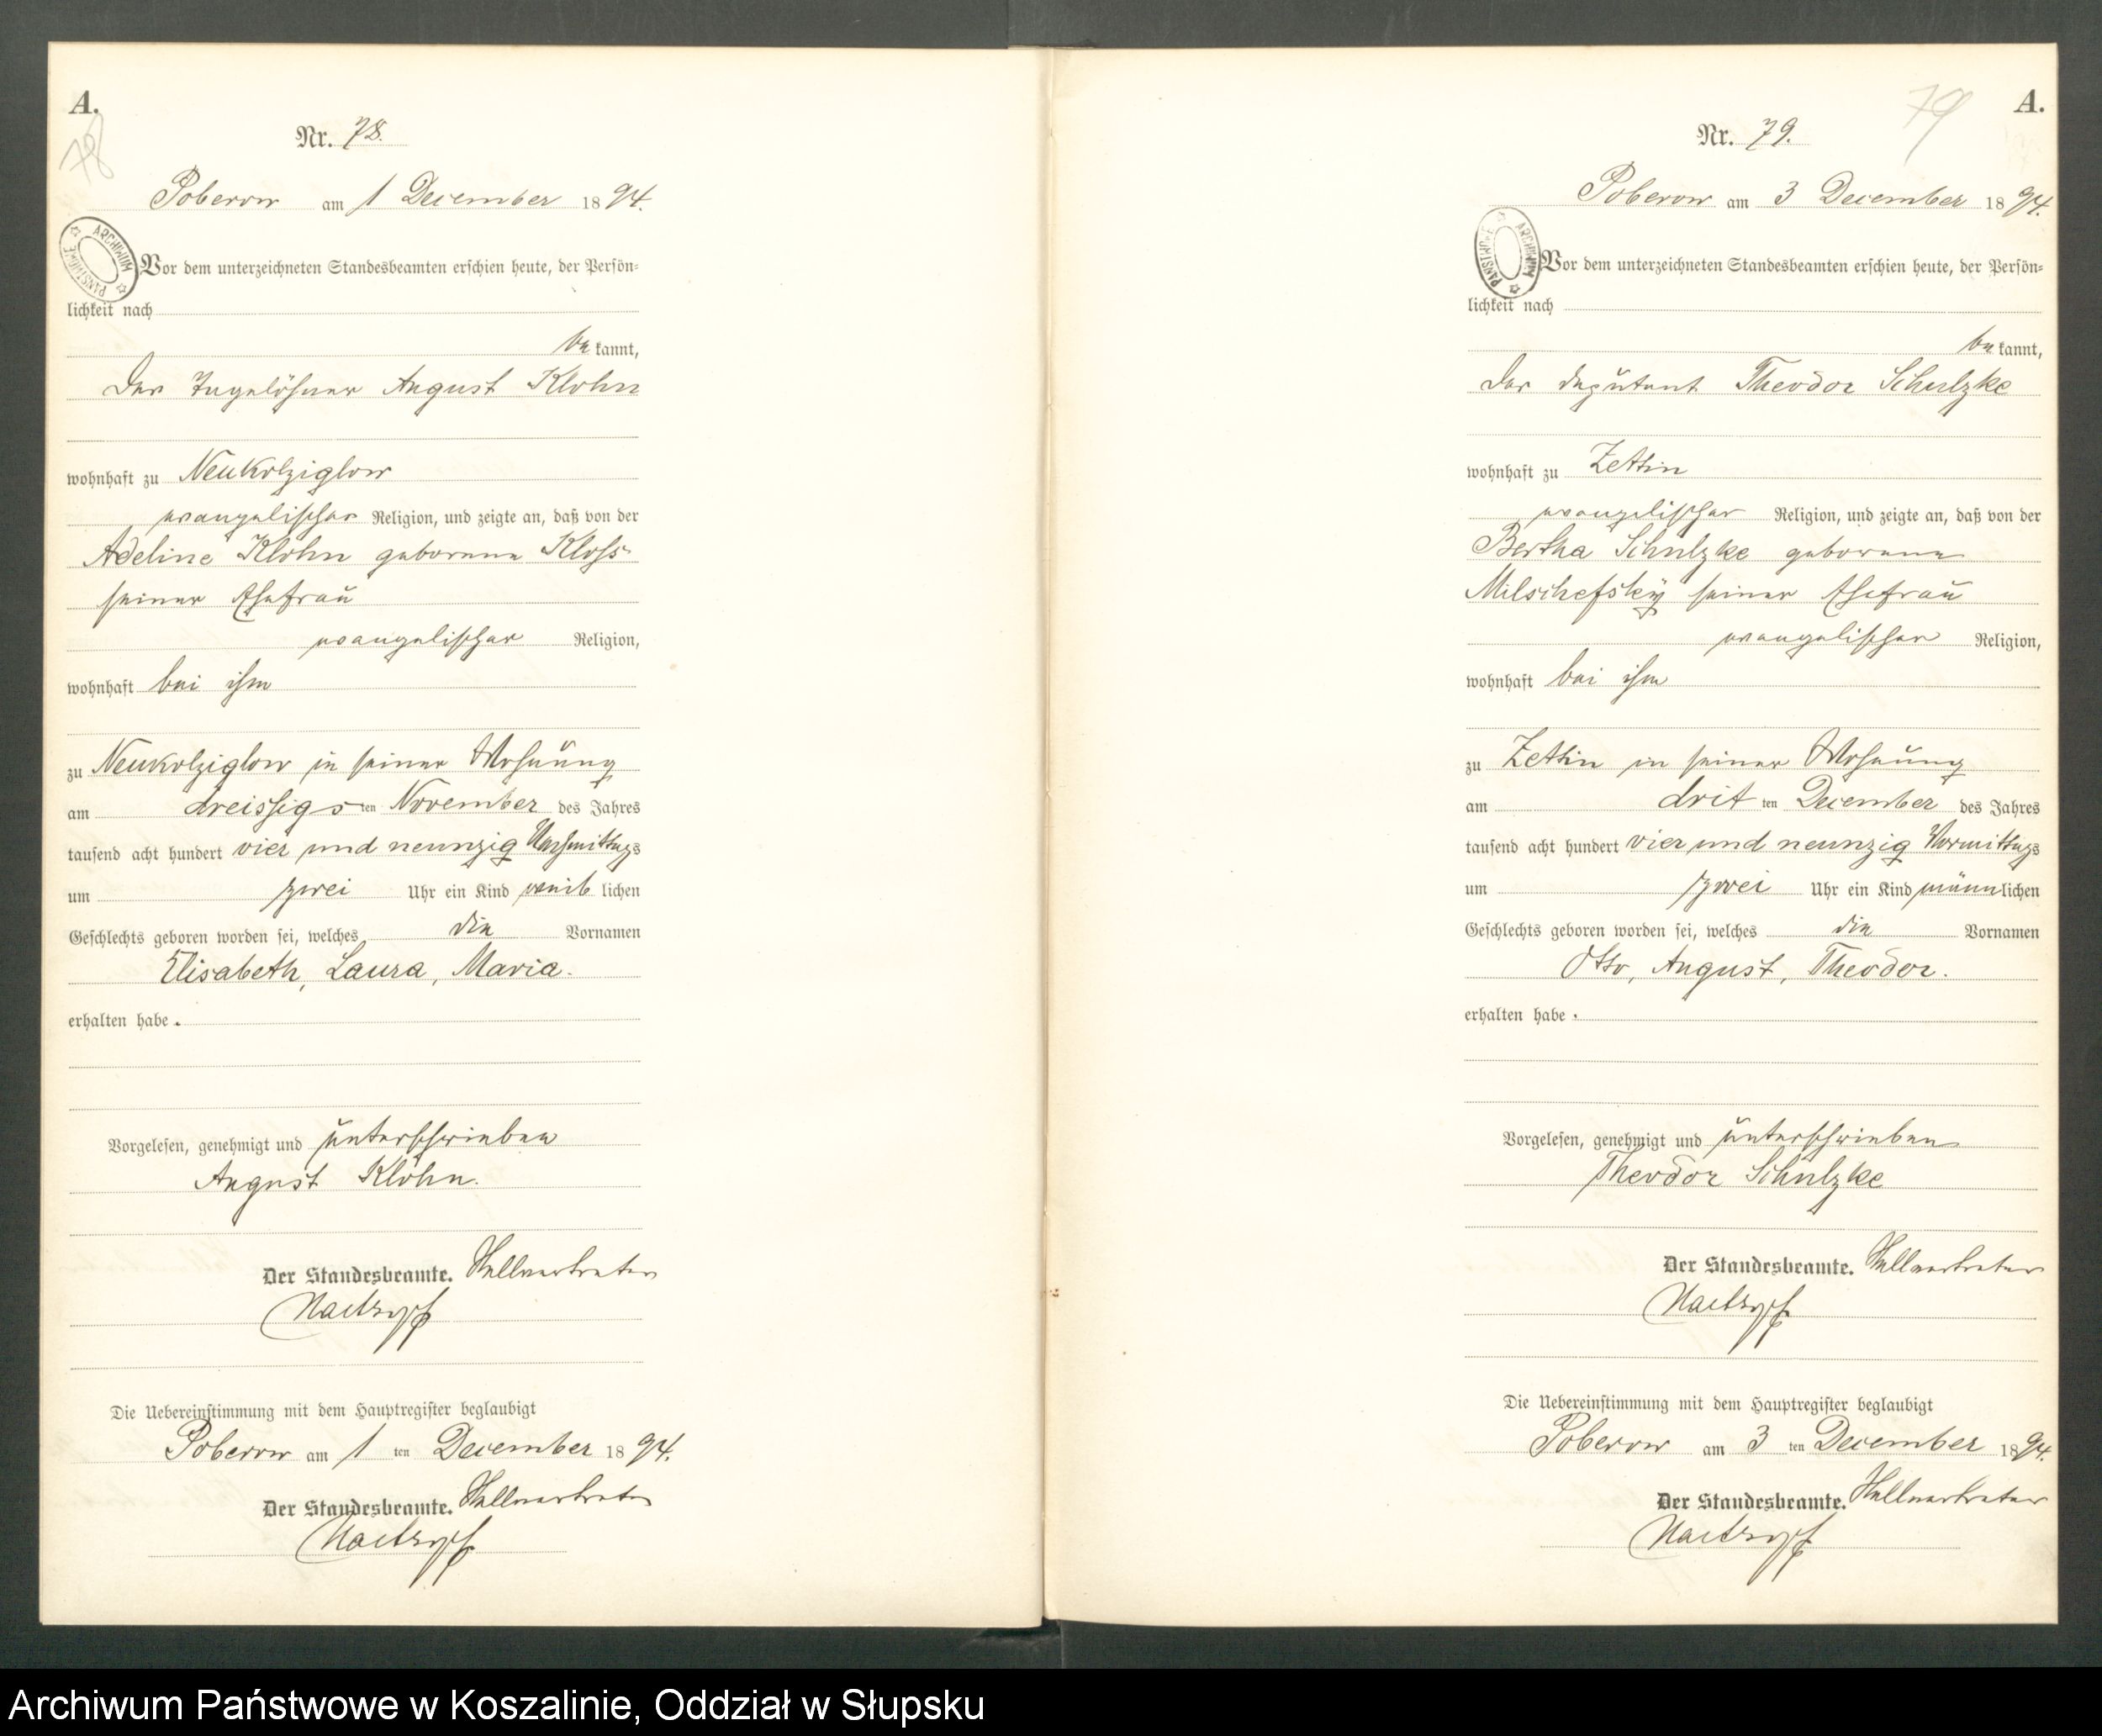 A.
78
Nr. 78.
Poberow am 1 December 1894.
ARCHIWUM PAŃSTWOWE
Vor dem unterzeichneten Standesbeamten erschien heute, der Persön=
lichkeit nach
bekannt,
der Tagelöhner August Klohn
wohnhaft zu Neukolziglow
evangelischer Religion, und zeigte an, daß von der
Adeline Klohn geborene Kloss
seiner Ehefrau
evangelischer Religion,
wohnhaft bei ihm
zu Neukolziglow in seiner Wohnung
am dreissigsten November des Jahres
tausend acht hundert vier und neunzig Nachmittags
um zwei Uhr ein Kind weiblichen
Geschlechts geboren worden sei, welches die Vornamen
Elisabeth, Laura, Maria.
erhalten habe.
Vorgelesen, genehmigt und unterschrieben
August Klohn.
Der Standesbeamte. Stellvertreter
Die Uebereinstimmung mit dem Hauptregister beglaubigt
Poberow am 1ten December 1894.
Der Standesbeamte. Stellvertreter
79
A.
Nr. 79.
Poberow am 3 December 1894.
ARCHIWUM PAŃSTWOWE
Vor dem unterzeichneten Standesbeamten erschien heute, der Persön=
lichkeit nach
bekannt,
der Deputant Theodor Schulzke
wohnhaft zu Zettin
evangelischer Religion, und zeigte an, daß von der
Bertha Schulzke geborene
Milschefsky seiner Ehefrau
evangelischer Religion,
wohnhaft bei ihm
zu Zettin in seiner Wohnung
am dritten December des Jahres
tausend acht hundert vier und neunzig Vormittags
um zwei Uhr ein Kind männlichen
Geschlechts geboren worden sei, welches die Vornamen
Otto, August, Theodor.
erhalten habe.
Vorgelesen, genehmigt und unterschrieben
Theodor Schulzke
Der Standesbeamte. Stellvertreter
Die Uebereinstimmung mit dem Hauptregister beglaubigt
Poberow am 3ten December 1894.
Der Standesbeamte. Stellvertreter
Archiwum Państwowe w Koszalinie, Oddział w Słupsku